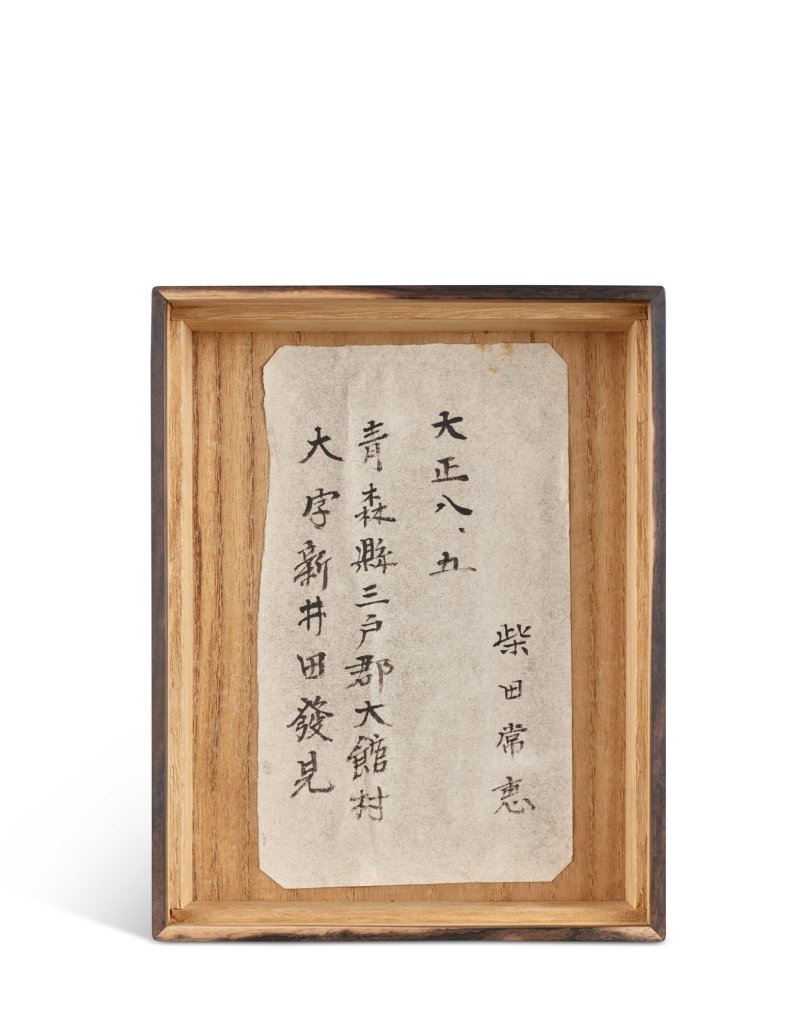 柴田常惠
大正八、五
青森縣三戸郡大館村
大字新井田發見